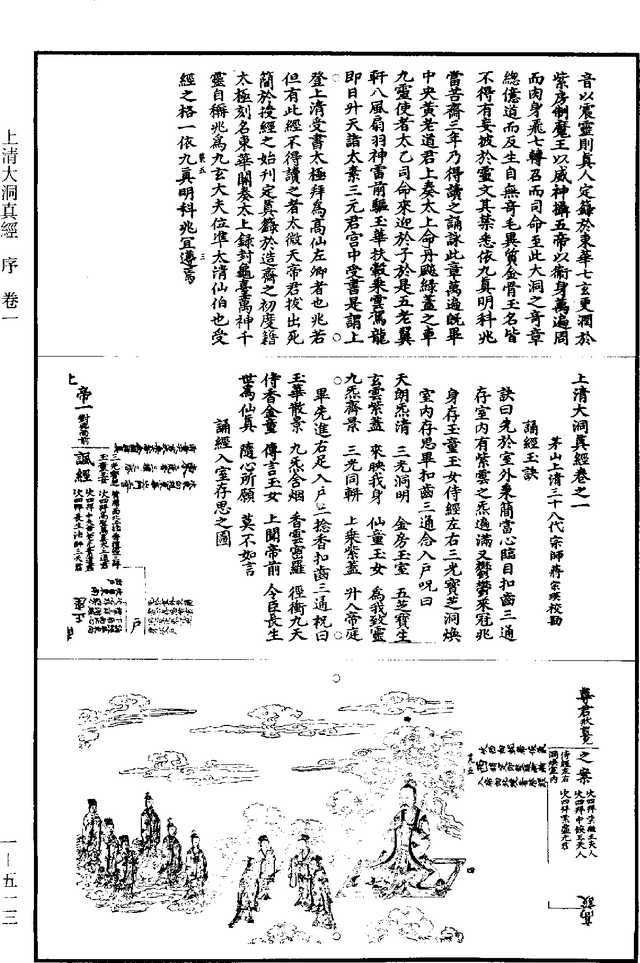 上清大洞真經 序 卷一
一—五一三
音以震靈則真人定籙於東華七玄更潤於
紫房制魔王以威神攝五帝以衛身萬遍周
而肉身飛七轉召而司命至此大洞之奇章
總億道而反生自無奇毛異質金骨玉名皆
不得有妄披於靈文其禁悉依九真明科兆
當苦齋三年乃得讀之誦詠此章萬遍既畢
中央黃老道君上奏太上命丹飈綠蓋之車
九靈使者太乙司命來迎於子於是五老翼
軒八風扇羽神雷前驅玉華扶轂乘雲駕龍
即日升天詣太素三元君宮中受書是謂上
登上清受書太極拜為高仙左卿者也兆若
但有此經不得讀之者太微天帝君拔出死
簡於後經之始刊定真籙於造齋之初度籍
太極刻名東華關奏太上錄封龜臺萬神千
靈自稱兆為九玄大夫位準太清仙伯也受
經之格一依九真明科兆宜遵焉
上清大洞真經卷之一
茅山上清三十八代宗師蔣宗瑛校勘
誦經玉訣
訣曰先於室外秉簡當心臨目扣齒三通
存室內有紫雲之炁遍滿又鬱鬱來冠兆
身存玉童玉女侍經左右三光寶芝洞煥
室內存思畢扣齒三通念入戶呪曰
天朗炁清 三光洞明 金房玉室 五芝寶生
玄雲紫蓋 來映我身 仙童玉女 為我致靈
九炁齊景 三光同軿 上乘紫蓋 升入帝庭
畢先進右足入戶三捻香扣齒三通祝曰
玉華散景 九炁含烟 香雲密羅 徑衝九天
侍香金童 傳言玉女 上聞帝前 令臣長生
世為仙真 隨心所願 莫不如言
誦經入室存思之圖
帝一
誦經
戶
之案
侍經左右
洞煥室內